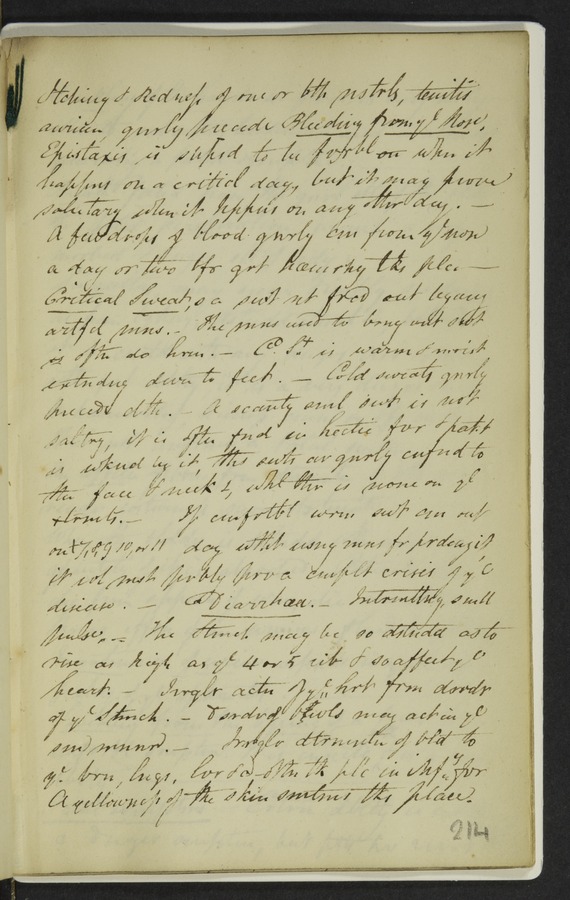 Itching & Redness of one or bth nstrls, tinitis
aurium, gnrly precede Bleeding from ye Nose.
Epistaxis is supsd to be fvrbl on when it
happens on a criticl day, but it may prove
salutary when it hppns on any othr day. —
A few drops of blood gnrly cm from ye nose
a day or two bfr grt Hæmrhg tks plce —
Critical Sweat, s a swt nt frcd out by any
artfcl mns. — The mns usd to bring out swt
is oftn do hrm. — Cl. St. is warm & moist
extndng down to feet. — Cold sweats gnrly
precede dth. — A scanty sml swt is not
saltry, it is often fnd in hectic fvr & patnt
is wknd by it, ths swts ar gnrly cnfnd to
the face & neck &, whl thr is none on ye
xtrmts. — If cmfrtbl wrm swt cm out
on 7, 8, 9, 10, or 11 day withut usng mns fr prdcng it,
it wl most prbbly prov a cmplt crisis of ye
disease. — Diarrhœa. — Intrmttng, smll
pulse. — The stmch may be so dstndd as to
rise as high as ye 4 or 5 rib & so affect ye
heart. — Irrglr actn of ye hrt frm dsrdr
of ye stmch. — Dsrdrd bowls may act in ye
sm mnnr. — Irrglr dtrmntn of bld to
ye brn, lngs, lvr &c oftn tk plc in fvr
A yellowness of the skin smtms tks place.
214